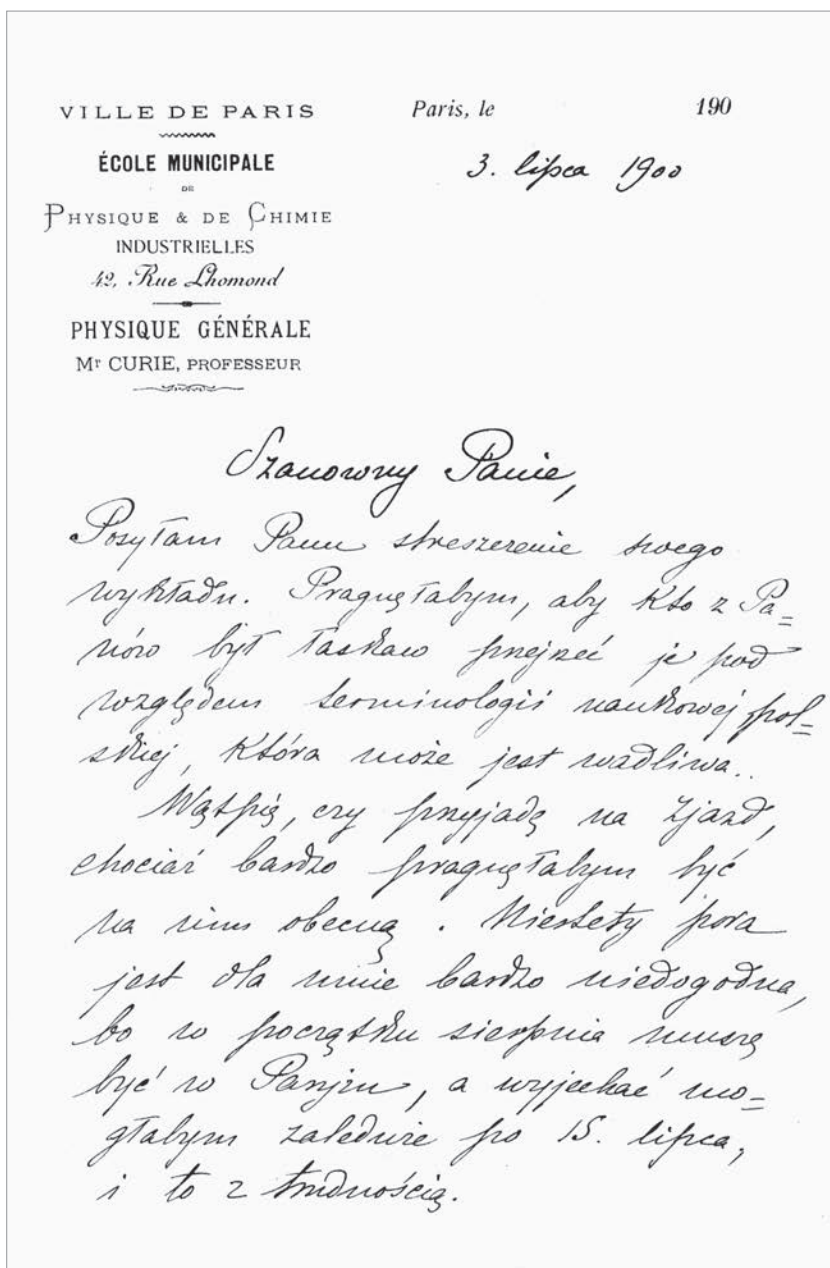 VILLE DE PARIS
ÉCOLE MUNICIPALE
DE
PHYSIQUE & DE CHIMIE
INDUSTRIELLES
42, Rue Lhomond
PHYSIQUE GÉNÉRALE
Mr CURIE, PROFESSEUR
Paris, le 190
3. lipca 1900
Szanowny Panie,
Posyłam Panu streszczenie swego
wykładu. Pragnęłabym, aby kto z Pa=
nów był łaskaw przejrzeć je pod
względem terminologii naukowej pol=
skiej, która może jest wadliwa..
Wątpię, czy przyjadę na Zjazd,
chociaż bardzo pragnęłabym być
na nim obecną. Niestety pora
jest dla mnie bardzo niedogodna,
bo w początku sierpnia muszę
być w Paryżu, a wyjechać mo=
głabym zaledwie po 15. lipca,
i to z trudnością.